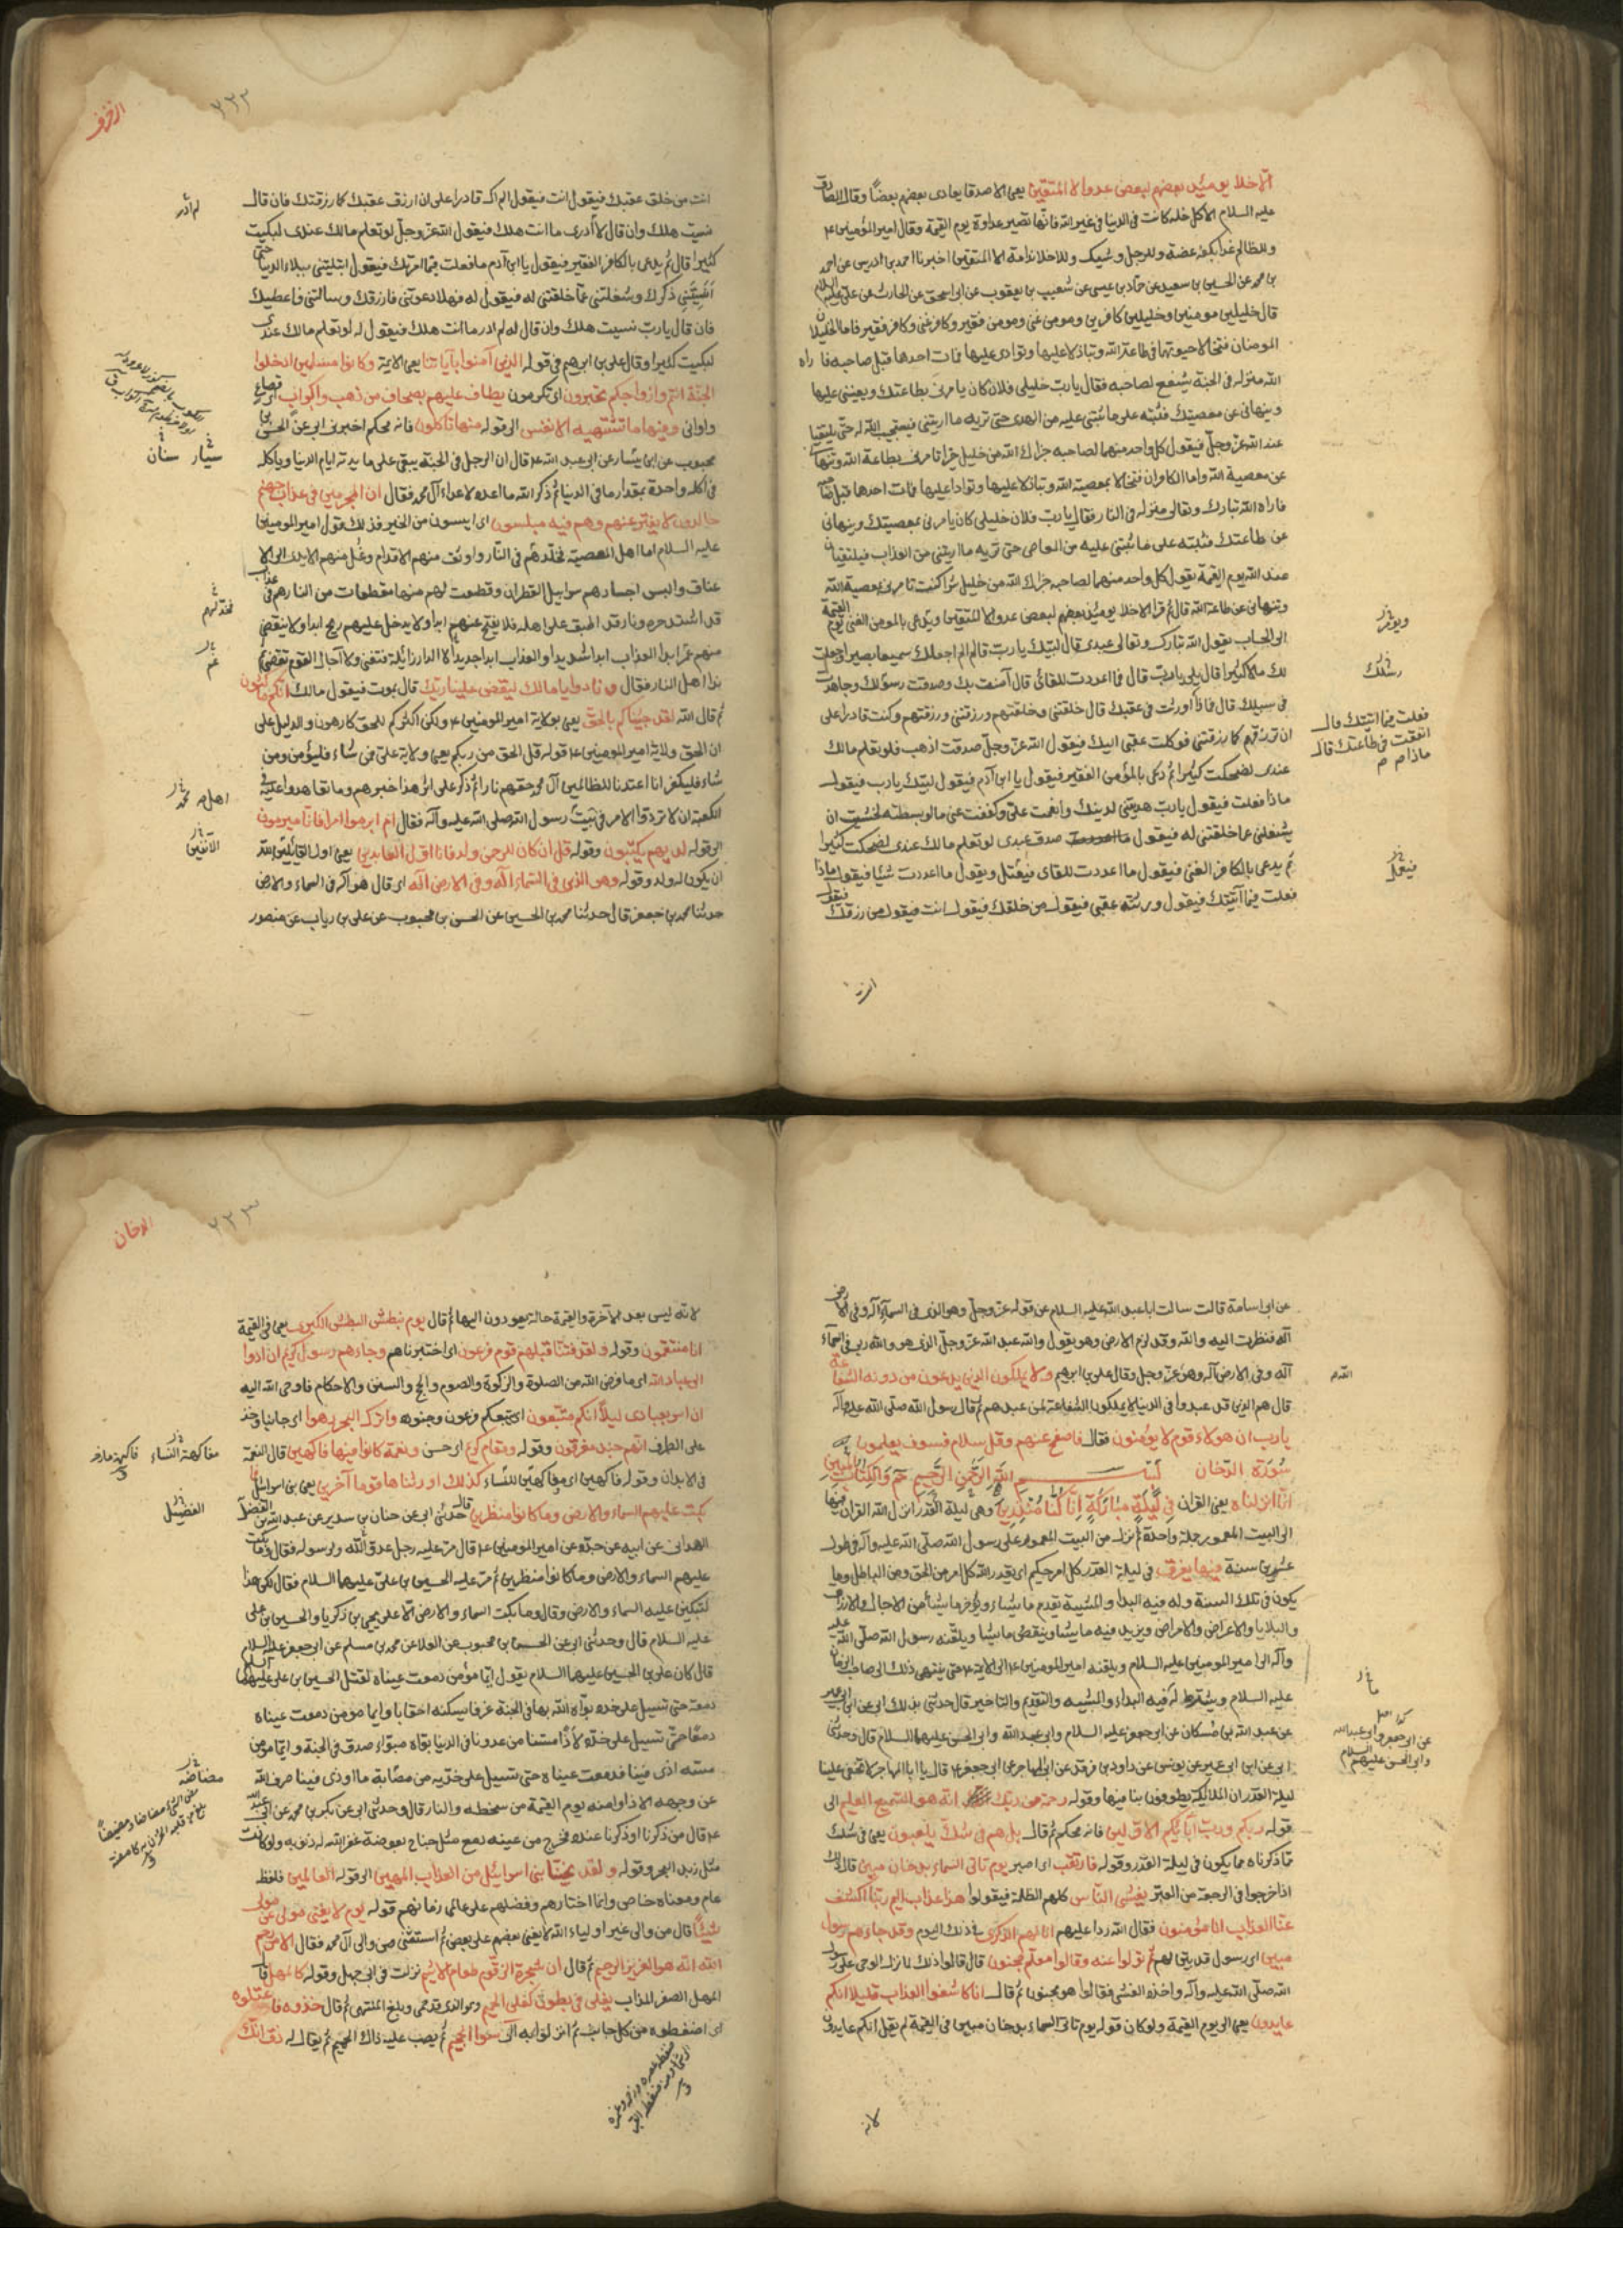 الاخلا يومئذ بعضهم لبعض عدوا الا المتقين يعنى الاصدقا يعادى بعضهم بعضًا وقال الصادق
عليه السلام الا كل خلة كانت فى الدنيا فى غير الله فانها تصير عداوة يوم القيمة وقال امير المؤمنين ع
وللظالم غدا بكفه عضة وللرجل وشيك وللاخلا ندامة الا المتقين اخبرنا احمد بن ادريس عن احمد
بن محمد عن الحسين بن سعيد عن حماد بن عيسى عن شعيب بن يعقوب عن ابى اسحق عن الحارث عن على عليه السلام
قال خليلين مومنين وخليلين كافرين ومومن غنى ومومن فقير وكافر غنى وكافر فقير فاما الخليلان
المومنان فتخالا حيوتهما فى طاعة الله وتباذلا عليها وتوادا عليها فمات احدهما قبل صاحبه فا راه
الله منزله فى الجنة يشفع لصاحبه فقال يارب خليلى فلان كان يامرنى بطاعتك ويعيننى عليها
وينهانى عن معصيتك فثبته على ما ثبتنى عليه من الهدى حتى تريه ما اريتنى فيستجيب الله له حتى يلتقيا
عند الله عز وجل فيقول كل واحد منهما لصاحبه جزاك الله من خليل خيرا تامرنى بطاعة الله وتنهانى
عن معصية الله واما الكافران فتخالا بمعصية الله وتباذلا عليها وتوادا عليها فمات احدهما قبل صاحبه
فاراه الله تبارك وتعالى منزله فى النار فقال يارب فلان خليلى كان يامرنى بمعصيتك وينهانى
عن طاعتك فثبته على ما ثبتنى عليه من المعاصى حتى تريه ما اريتنى من العذاب فيلتقيان
عند الله يوم القيمة يقول كل واحد منهما لصاحبه جزاك الله من خليل شرا كنت تامرنى بمعصية الله
وتنهانى عن طاعة الله قال ثم قرا الاخلا يومئذ بعضهم لبعض عدوا الا المتقين ويدعى بالمومن الغنى يوم القيمة
الى الحساب يقول الله تبارك وتعالى عبدى قال لبيك يارب قال الم اجعلك سميعا بصيرا وجعلت
لك مالا كثيرا قال بلى يارب قال فما اعددت للقائى قال آمنت بك وصدقت رسولك وجاهدت
فى سبيلك قال فماذا اورثت فى عقبك قال خلقتنى وخلقتهم ورزقتنى ورزقتهم وكنت قادرا على
ان ترزقهم كما رزقتنى فوكلت عقبى اليك فيقول الله عز وجل صدقت اذهب فلو تعلم مالك
عندى لضحكت كثيرا ثم دعى بالمؤمن الفقير فيقول يا ابن آدم فيقول لبيك يارب فيقول
ماذا فعلت فيقول يارب هديتنى لدينك وانعمت على وكففت عنى ما لو بسطته لخشيت ان
يشغلنى عما خلقتنى له فيقول صدق عبدى لو تعلم مالك عندى لضحكت كثيرا
ثم يدعى بالكافر الغنى فيقول ما اعددت للقاى فيقول ما اعددت شيئا فيقول ماذا
فعلت فيما آتيتك فيقول ورثته عقبى فيقول من خلقك فيقول انت فيقول من رزقك
ويؤثر
رسلك
فعلت فيما اتيتك قال
انفقت فى طاعتك قال
ماذا
انت
الزخرف
٢٢٢
انت من خلق عقبك فيقول انت فيقول الم اك قادرا على ان ارزق عقبك كما رزقتك فان قال
نسيت هلك وان قال لا أدرى ما انت هلك فيقول الله عز وجل لو تعلم مالك عندى لبكيت
كثيرا قال ثم يدعى بالكافر الفقير فيقول يا ابن آدم ما فعلت فيما امرتك فيقول ابتليتنى ببلاء الدنيا حتى
انسيتنى ذكرك وشغلتنى عما خلقتنى له فيقول له فهلا دعوتنى فارزقك وسالتنى فاعطيك
فان قال يارب نسيت هلك وان قال له لم ادر ما انت هلك فيقول له لو تعلم مالك عندى
لبكيت كثيرا وقال على بن ابرهيم فى قوله الذين آمنوا بآياتنا يعنى الائمة وكانوا مسلمين ادخلوا
الجنة انتم وازواجكم تحبرون اى تكرمون يطاف عليهم بصحاف من ذهب واكواب اى قصاع
واوانى وفيها ما تشتهيه الانفس الى قوله منها تاكلون فانه محكم اخبرنى ابى عن الحسن بن
محبوب عن ابن يسار عن ابى عبد الله ع قال ان الرجل فى الجنة يبقى على مايدته ايام الدنيا وياكل
فى اكله واحدة بمقدار ما فى الدنيا ثم ذكر الله ما اعده لاعداء آل محمد فقال ان المجرمين فى عذاب جهنم
خالدون لا يفتر عنهم وهم فيه مبلسون اى ايسون من الخير فذلك قول امير المومنين
عليه السلام اما اهل المعصية فخلدهم فى النار واوثق منهم الاقدام وغل منهم الايدى الى الا
عناق والبس اجسادهم سرابيل القطران وقطعت لهم منها مقطعات من النار هم فى عذاب
قد اشتد حره ونار قد اطبق على اهله فلا يفتح عنهم ابدا ولا يدخل عليهم ريح ابدا ولا ينقضى
منهم غم ابدا العذاب ابدا شديد والعذاب ابدا جديد لا الدار زايلة فتفنى ولا آجال القوم تقضى ثم
نداء اهل النار فقال ونادوا يا مالك ليقض علينا ربك قال يموت فيقول مالك انكم ماكثون
ثم قال الله لقد جئناكم بالحق يعنى بولاية امير المومنين ع ولكن اكثركم للحق كارهون والدليل على
ان الحق ولاية امير المومنين ع قوله قل الحق من ربكم يعنى ولاية على فمن شاء فليؤمن ومن
شاء فليكفر انا اعتدنا للظالمين آل محمد حقهم نارا ثم ذكر على اثر هذا خبرهم وما تعاهدوا عليه فى
الكعبة ان لا تردوا الامر فى بيت رسول الله صلى الله عليه وآله فقال ام ابرموا امرا فانا مبرمون
الى قوله لديهم يكتبون وقوله قل ان كان للرحمن ولد فانا اول العابدين يعنى اول القايلين لله
ان يكون له ولد وقوله وهو الذى فى السماء اله وفى الارض اله اى قال هو اله فى السماء والارض
حدثنا محمد بن جعفر قال حدثنا محمد بن الحسين عن الحسن بن محبوب عن على بن رياب عن منصور
لم ادر
سيار سنان
اهل محمد
الآنفين
عن ابى اسامة قالت سالت ابا عبد الله عليه السلام عن قوله عز وجل وهو الذى فى السماء اله وفى الارض
اله فنظرت اليه والله وقد لزم الارض وهو يقول والله عبد الله عز وجل الذى هو والله ربى فى السماء
اله وفى الارض اله وهو عز وجل وقال على بن ابرهيم ولا يملكون الذين يدعون من دونه الشفاعة
قال هم الذين قد عبدوا فى الدنيا لا يملكون الشفاعة لمن عبدهم ثم قال رسول الله صلى الله عليه وآله
يارب ان هولاء قوم لا يؤمنون فقال فاصفح عنهم وقل سلام فسوف يعلمون
سورة الدخان بسم الله الرحمن الرحيم حم والكتاب المبين
انا انزلناه يعنى القران فى ليلة مباركة انا كنا منذرين وهى ليلة القدر انزل الله القران فيها
الى البيت المعمور جملة واحدة ثم نزل من البيت المعمور على رسول الله صلى الله عليه وآله فى طول
عشرين سنة فيها يفرق فى ليلة القدر كل امر حكيم اى يقدر الله كل امر من الحق ومن الباطل وما
يكون فى تلك السنة وله فيه البدا والمشيية يقدم ما يشاء ويؤخر ما يشأ من الاجال والارزاق
والبلايا والاعراض والامراض ويزيد فيه ما يشا وينقص ما يشا ويلقيه رسول الله صلى الله عليه
وآله الى امير المومنين عليه السلام ويلقيه امير المومنين ع الى الايمة ع حتى ينتهى ذلك الى صاحب الزمان
عليه السلام ويشترط له فيه البداء والمشيية والتقديم والتاخير قال حدثنى بذلك ابى عن ابن ابى عمير
عن عبد الله بن مسكان عن ابى جعفر عليه السلام وابى عبد الله وابى الحسن عليهما السلام قال وحدثنى
ابى عن ابن ابى عمير عن يونس عن داود بن فرقد عن ابى المهاجر عن ابى جعفر ع قال يا ابا المهاجر لا تخفى علينا
ليلة القدر ان الملائكة يطوفون بنا فيها وقوله رحمة من ربك انه هو السميع العليم الى
قوله ربكم ورب آبائكم الاولين فانه محكم ثم قال بل هم فى شك يلعبون يعنى فى شك
مما ذكرناه مما يكون فى ليلة القدر وقوله فارتقب اى اصبر يوم تاتى السماء بدخان مبين قال ذلك
اذا خرجوا فى الرجعة من القبر يغشى الناس كلهم الظلمة فيقولوا هذا عذاب اليم ربنا اكشف
عنا العذاب انا مؤمنون فقال الله ردا عليهم انى لهم الذكرى فى ذلك اليوم وقد جاءهم رسول
مبين اى رسول قد بين لهم ثم تولوا عنه وقالوا معلم مجنون قال قالوا ذلك لما نزل الوحى على رسول
الله صلى الله عليه وآله واخذه الغشى فقالوا هو مجنون ثم قال انا كاشفوا العذاب قليلا انكم
عايدون يعنى الى يوم القيمة ولو كان قوله يوم تاتى السماء بدخان مبين فى القيمة لم يقل انكم عايدون
عن ابى جعفر وابى عبد الله
وابى الحسن عليهم السلام
لانه
الدخان
٢٢٣
لانه ليس بعد الآخرة والقيمة حالة يعودون اليها ثم قال يوم نبطش البطشة الكبرى يعنى فى القيمة
انا منتقمون وقوله ولقد فتنا قبلهم قوم فرعون اى اختبرناهم وجاءهم رسول كريم ان ادوا
الى عباد الله اى ما فرض الله من الصلوة والزكوة والصوم والحج والسنن والاحكام فاوحى الله اليه
ان اسر بعبادى ليلا انكم متبعون اى يتبعكم فرعون وجنوده واترك البحر رهوا اى جانبا وخذ
على الطرف انهم جند مغرقون وقوله ومقام كريم اى حسن ونعمة كانوا فيها فاكهين قال النعمة
فى الابدان وقوله فاكهين اى مفاكهين للنساء كذلك اورثناها قوما آخرين يعنى بنى اسرائيل فما
بكت عليهم السماء والارض وما كانوا منظرين قال حدثنى ابى عن حنان بن سدير عن عبد الله بن الفضل
الهمدانى عن ابيه عن جده عن امير المومنين ع قال مر عليه رجل عدو لله ولرسوله فقال وما بكت
عليهم السماء والارض وما كانوا منظرين ثم مر عليه الحسين بن على عليهما السلام فقال لكن هذا
لتبكين عليه السماء والارض وقال وما بكت السماء والارض الا على يحيى بن زكريا والحسين بن على
عليه السلام قال وحدثنى ابى عن الحسن بن محبوب عن العلا عن محمد بن مسلم عن ابى جعفر عليه السلام
قال كان على بن الحسين عليهما السلام يقول ايما مؤمن دمعت عيناه لقتل الحسين بن على عليهما السلام
دمعة حتى تسيل على خده بواه الله بها فى الجنة غرفا يسكنها احقابا وايما مومن دمعت عيناه
دمعا حتى تسيل على خده لاذًا مسنا من عدونا فى الدنيا بواه مبوّاء صدق فى الجنة وايما مومن
مسه اذى فينا فدمعت عيناه حتى تسيل على خديه من مضاضة ما اوذى فينا صرف الله
عن وجهه الاذا وامنه يوم القيمة من سخطه والنار قال وحدثنى ابى عن بكر بن محمد عن ابى عبد الله
ع قال من ذكرنا او ذكرنا عنده فخرج من عينه دمع مثل جناح بعوضة غفر الله له ذنوبه ولو كانت
مثل زبد البحر وقوله ولقد نجينا بنى اسرائيل من العذاب المهين الى قوله العالمين فلفظه
عام ومعناه خاص وانما اختارهم وفضلهم على عالمى زمانهم قوله يوم لا يغنى مولى عن مولى
شيئًا قال من والى غير اولياء الله لا يغنى بعضهم على بعض ثم استثنى من والى آل محمد فقال الا من رحم
الله انه هو العزيز الرحيم ثم قال ان شجرة الزقوم طعام الاثيم نزلت فى ابى جهل وقوله كالمهل قال
المهل الصفر المذاب يغلى فى بطون كغلى الحميم وهو الذى قد حمى وبلغ المنتهى ثم قال خذوه فاعتلوه
اى اضغطوه من كل جانب ثم انزلوا به الى سواء الجحيم ثم يصب عليه ذلك الحميم ثم يقال له ذق انك
مفاكهة النساء
الفضيل
مضاضة